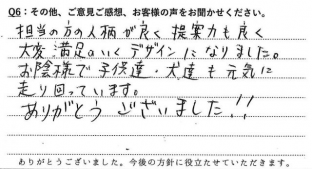 Q6：その他、ご意見ご感想、お客様の声をお聞かせください。
担当の方の人柄が良く 提案力も良く
大変満足のいくデザインになりました。
お陰様で子供達・犬達も元気に
走り回っています。
ありがとう ございました!!
ありがとうございました。今後の方針に役立たせていただきます。